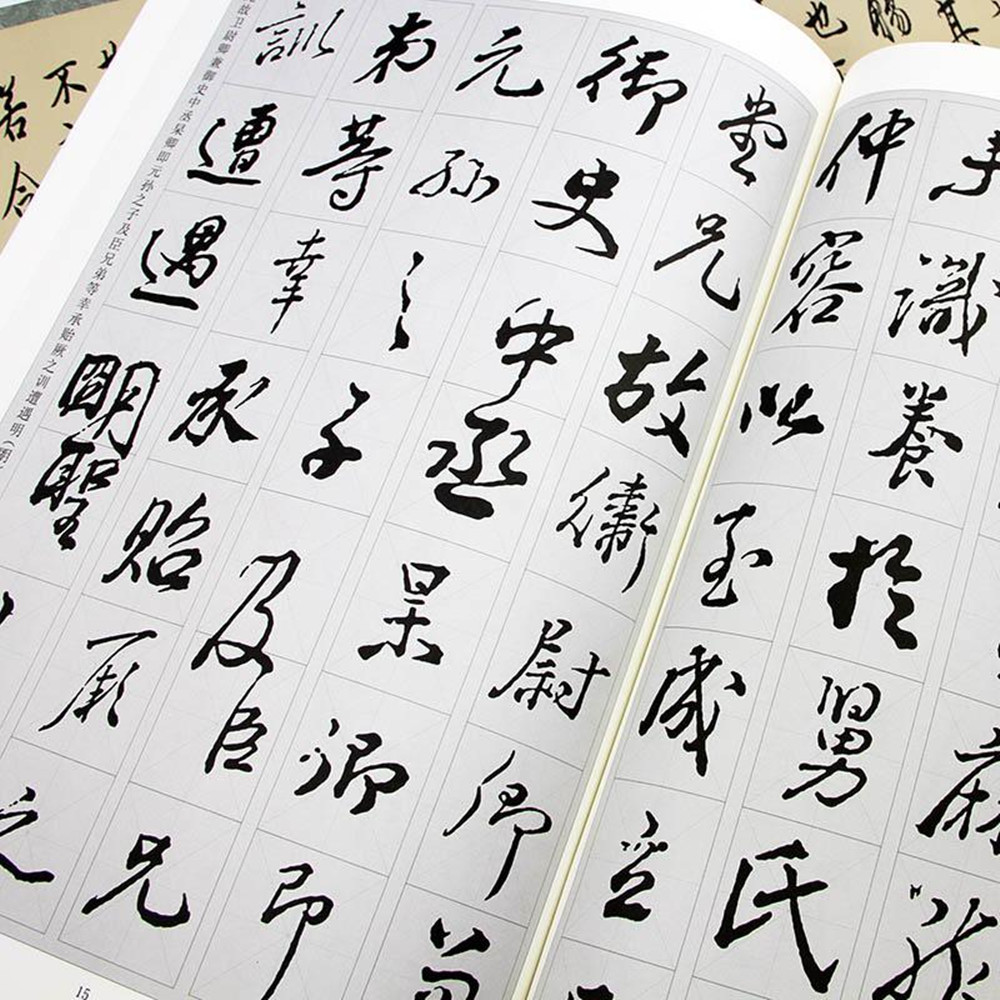 識養於舅氏
仲容以至成立
堂兄故衛尉卿
御史中丞杲卿即
元孫之子及臣兄
弟等幸承貽厥之
訓遭遇明聖
故卫尉卿兼御史中丞杲卿即元孙之子及臣兄弟等幸承贻厥之训遭遇明
15